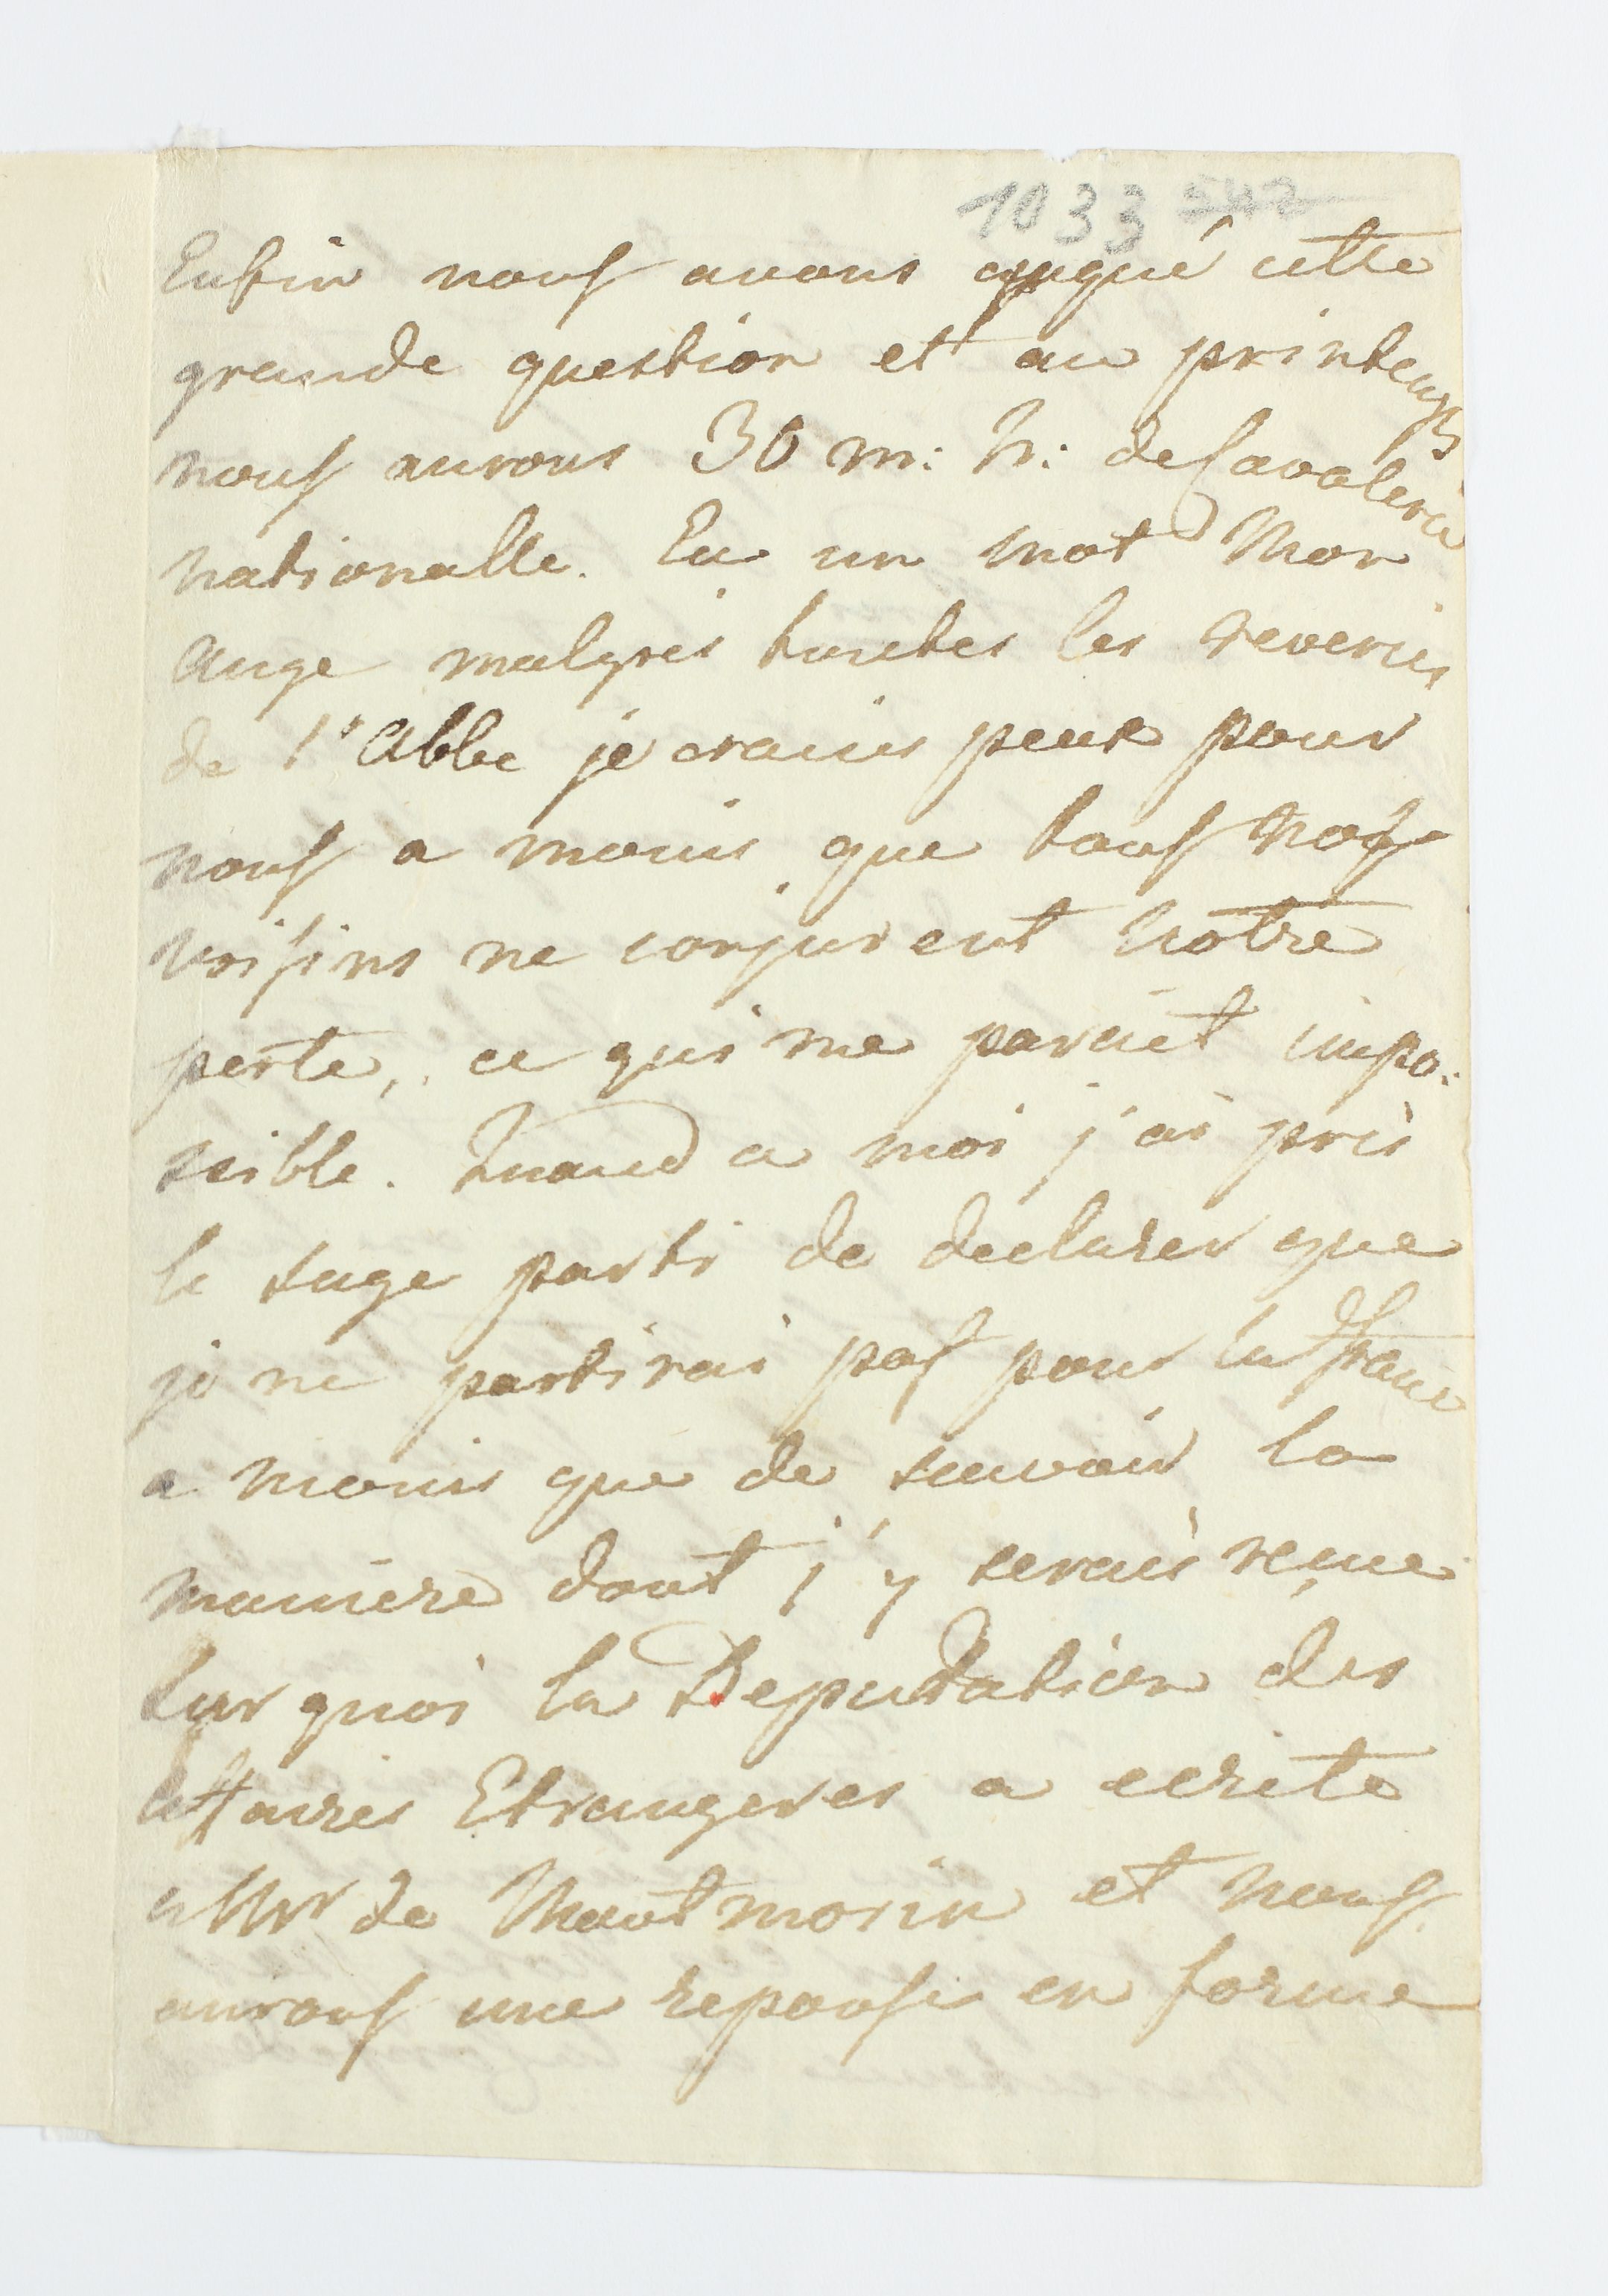 1033 542
Enfin nous avons gagné cette
grande question et au printemps
nous aurons 30 m: h: de Cavalerie
nationalle. En un mot Mon
Ange malgrés toutes les reveries
de l'Abbe je crains peux pour
nous a moins que tous nos
voisins ne conjurent notre
perte, ce qui me parait impo:
ssible. Quand a moi j'ai pris
le sage parti de declarer que
je ne partirai pas pour la France
a moins que de scavoir la
maniere dont j'y serais reçue
sur quoi la Deputation des
Affaires Etrangeres a ecrite
a Mr de Montmorin et nous
aurons une reponse en forme